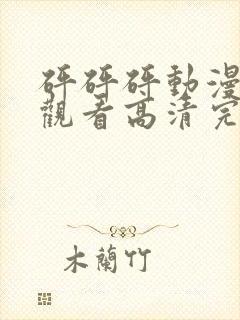 砰砰砰動漫
觀看高清完
木蘭竹